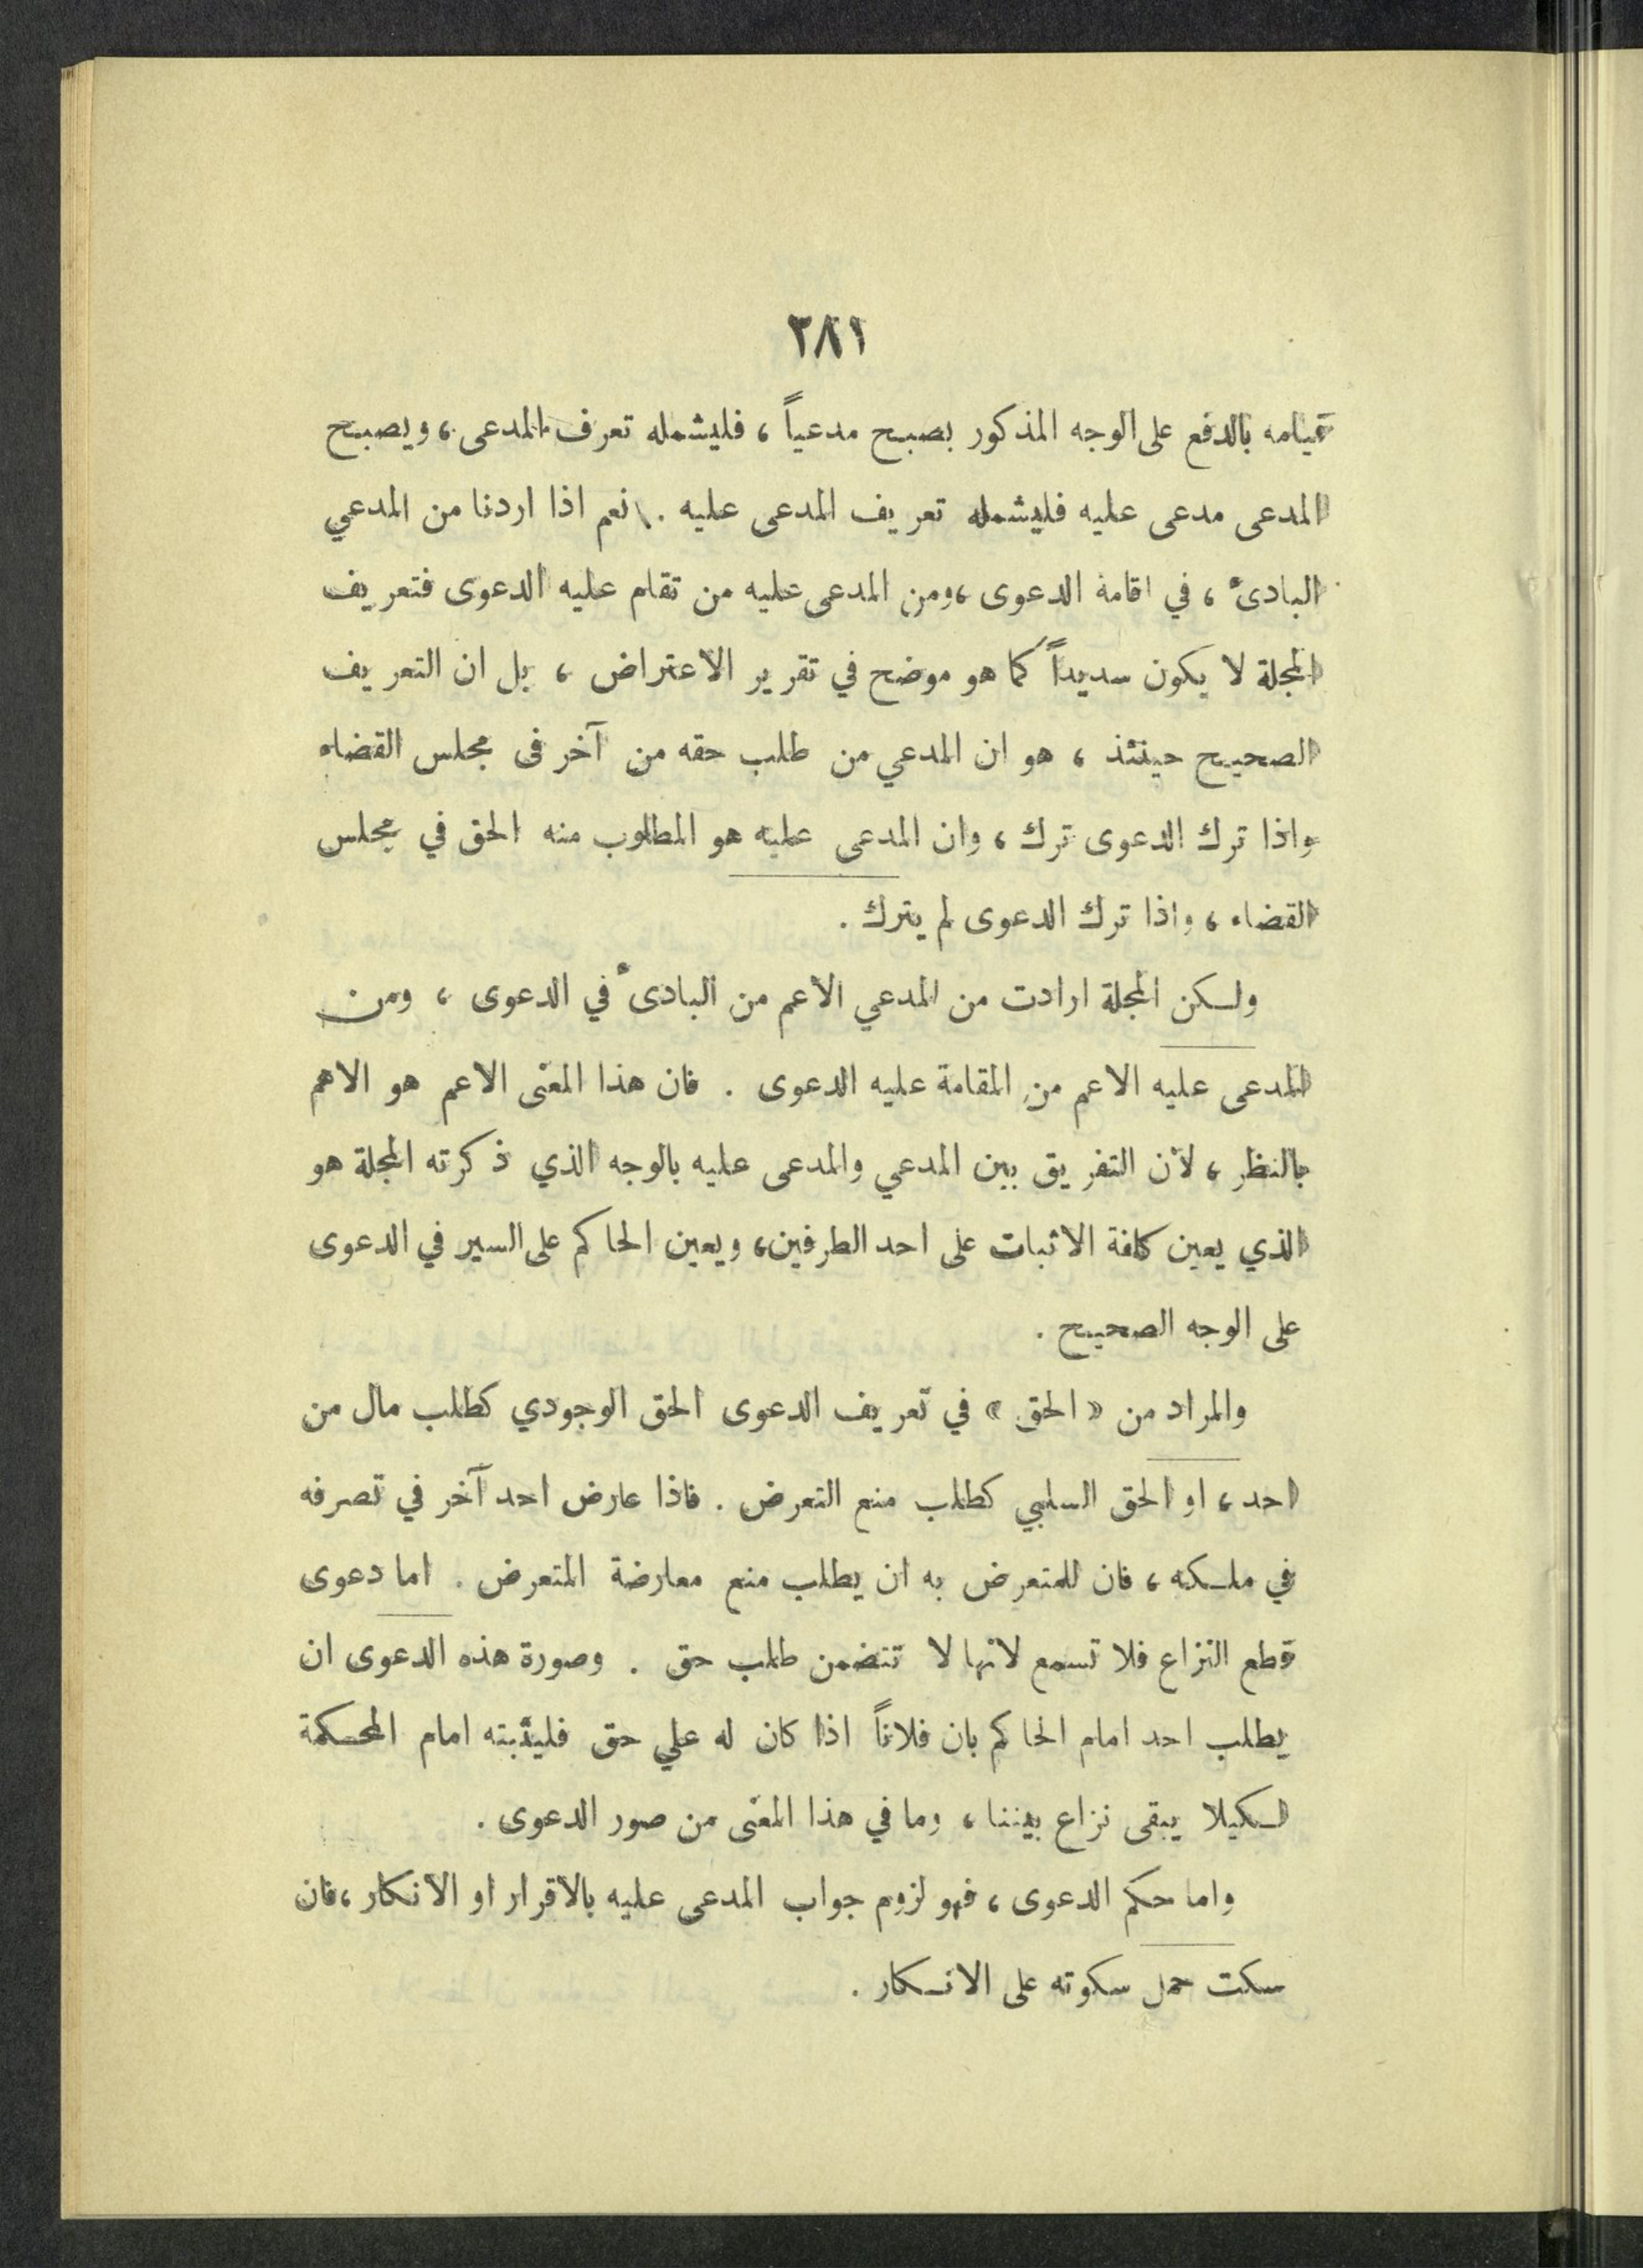 ٢٨١
قيامه بالدفع على الوجه المذكور يصبح مدعياً ، فليشمله تعرف المدعى ، ويصبح
المدعى مدعى عليه فليشمله تعريف المدعى عليه . نعم اذا اردنا من المدعي
البادىء ، في اقامة الدعوى ، ومن المدعى عليه من تقام عليه الدعوى فتعريف
المجلة لا يكون سديداً كما هو موضح في تقرير الاعتراض ، بل ان التعريف
الصحيح حينئذ ، هو ان المدعي من طلب حقه من آخر فى مجلس القضاء
واذا ترك الدعوى ترك ، وان المدعى عليه هو المطلوب منه الحق في مجلس
القضاء ، واذا ترك الدعوى لم يترك .
ولكن المجلة ارادت من المدعي الاعم من البادىء في الدعوى ، ومن
المدعى عليه الاعم من المقامة عليه الدعوى . فان هذا المعنى الاعم هو الاهم
بالنظر ، لأن التفريق بين المدعي والمدعى عليه بالوجه الذي ذكرته المجلة هو
الذي يعين كلفة الاثبات على احد الطرفين ، ويعين الحاكم على السير في الدعوى
على الوجه الصحيح .
والمراد من « الحق » في تعريف الدعوى الحق الوجودي كطلب مال من
احد ، او الحق السلبي كطلب منع التعرض . فاذا عارض احد آخر في تصرفه
في ملكه ، فان للمتعرض به ان يطلب منع معارضة المتعرض . اما دعوى
قطع النزاع فلا تسمع لانها لا تتضمن طلب حق . وصورة هذه الدعوى ان
يطلب احد امام الحاكم بان فلاناً اذا كان له علي حق فليثبته امام المحكمة
لكيلا يبقى نزاع بيننا ، وما في هذا المعنى من صور الدعوى .
واما حكم الدعوى ، فهو لزوم جواب المدعى عليه بالاقرار او الانكار ، فان
سكت حمل سكوته على الانكار .